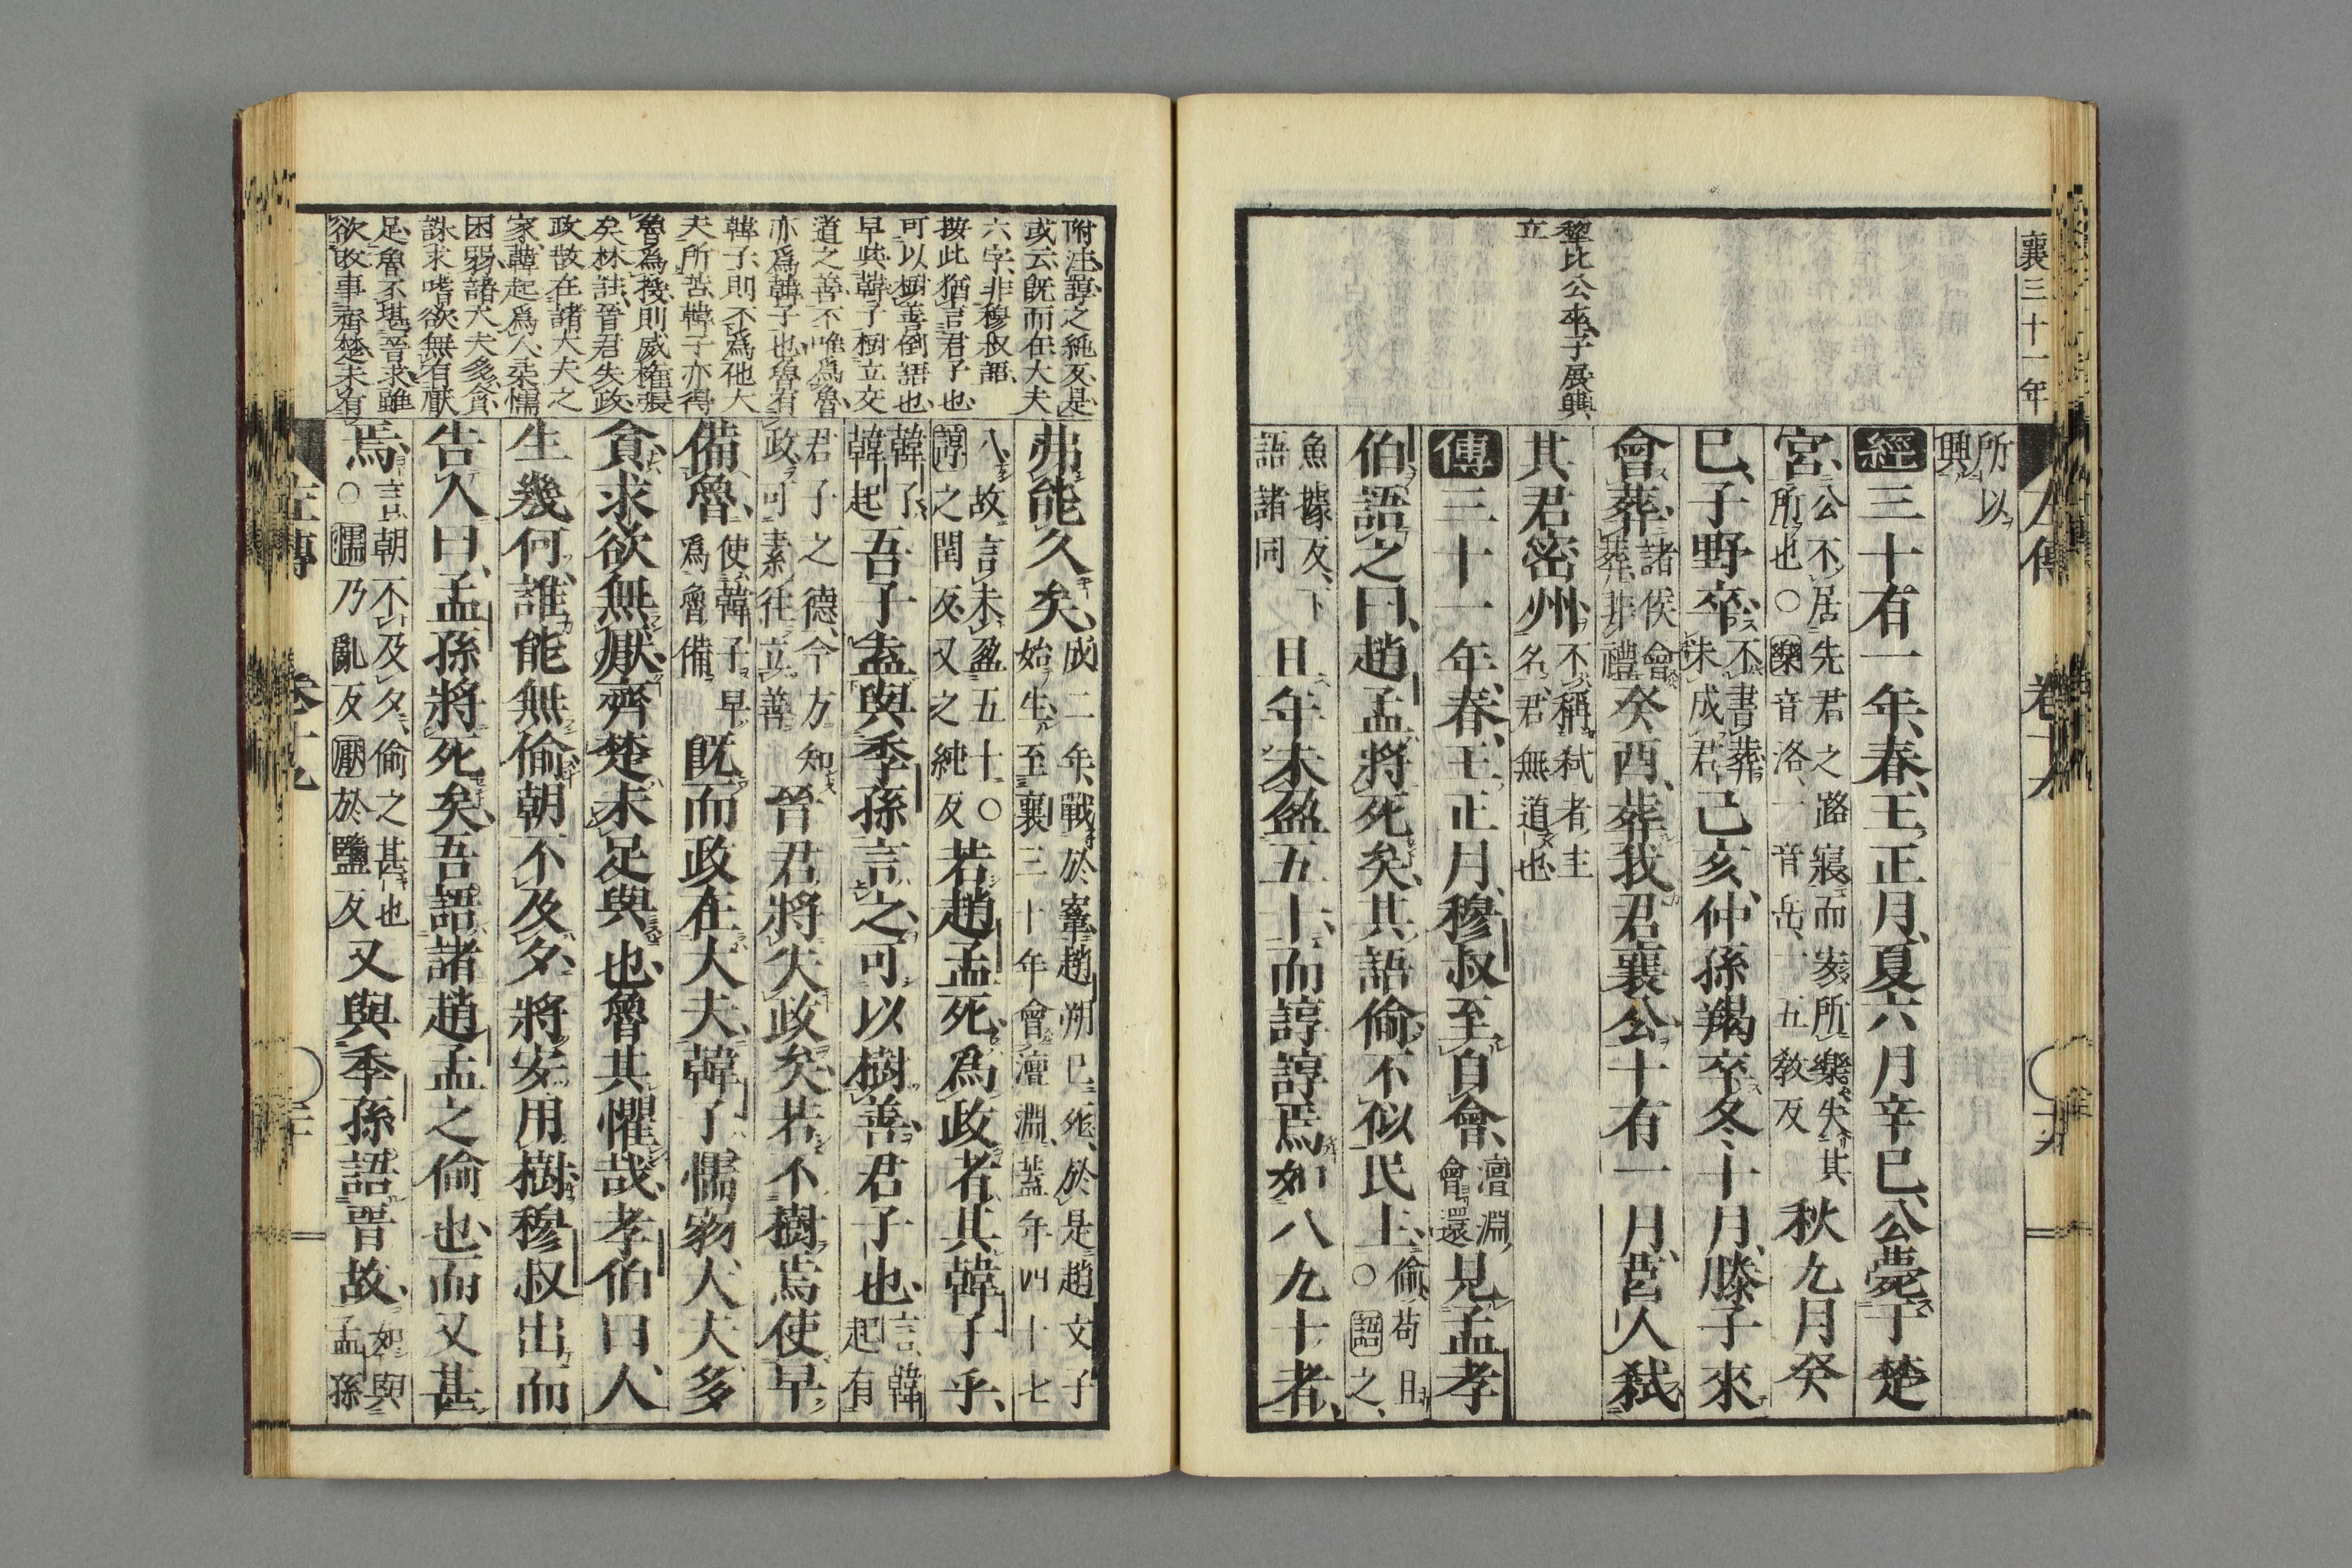 襄三十一年
犂比公來子展輿
立
所以
興
經三十有一年春王正月夏六月辛巳公薨于楚
宮公不居先君之路寢而安所樂失其所也○樂音洛一音岳一五教反秋九月癸
巳子野卒不書葬未成君己亥仲孫羯卒冬十月滕子來
會葬諸侯會葬非禮癸酉葬我君襄公十有一月莒人弒
其君密州不稱弒者主名君無道也
傳三十一年春王正月穆叔至自會澶淵會還見孟孝
伯語之曰趙孟將死矣其語偷不似民主偷苟且○語之
魚據反下語諸同且年未盈五十而諄諄焉如八九十者
附注諄之純反是
或云既而在大夫
六字非穆叔語
按此猶言君子也
可以樹善倒語也
早與韓子樹立交
道之善不唯爲魯
亦爲韓子也魯有
韓子則不爲他大
夫所苦韓子亦得
魯爲援則威權張
矣林註晉君失政
政散在諸大夫之
家韓起爲人柔懦
困弱諸大夫多貪
誅求嗜欲無有厭
足魯不堪晉求雖
欲改事齊楚未有
弗能久矣成二年戰於鞌趙朔已死於是趙文子始生至襄三十年會澶淵蓋年四十七
八故言未盈五十○諄之閏反又之純反若趙孟死爲政者其韓子乎
韓子韓起吾子盍與季孫言之可以樹善君子也言韓起有
君子之德今方知政可素往立善晉君將失政矣若不樹焉使早
備魯使韓子早爲魯備既而政在大夫韓子懦弱大夫多
貪求欲無厭齊楚未足與也魯其懼哉孝伯曰人
生幾何誰能無偷朝不及夕將安用樹穆叔出而
告人曰孟孫將死矣吾語諸趙孟之偷也而又甚
焉言朝不及夕偷之甚也○懦乃亂反厭於鹽反又與季孫語晉故如與孟孫
左傳 卷十九